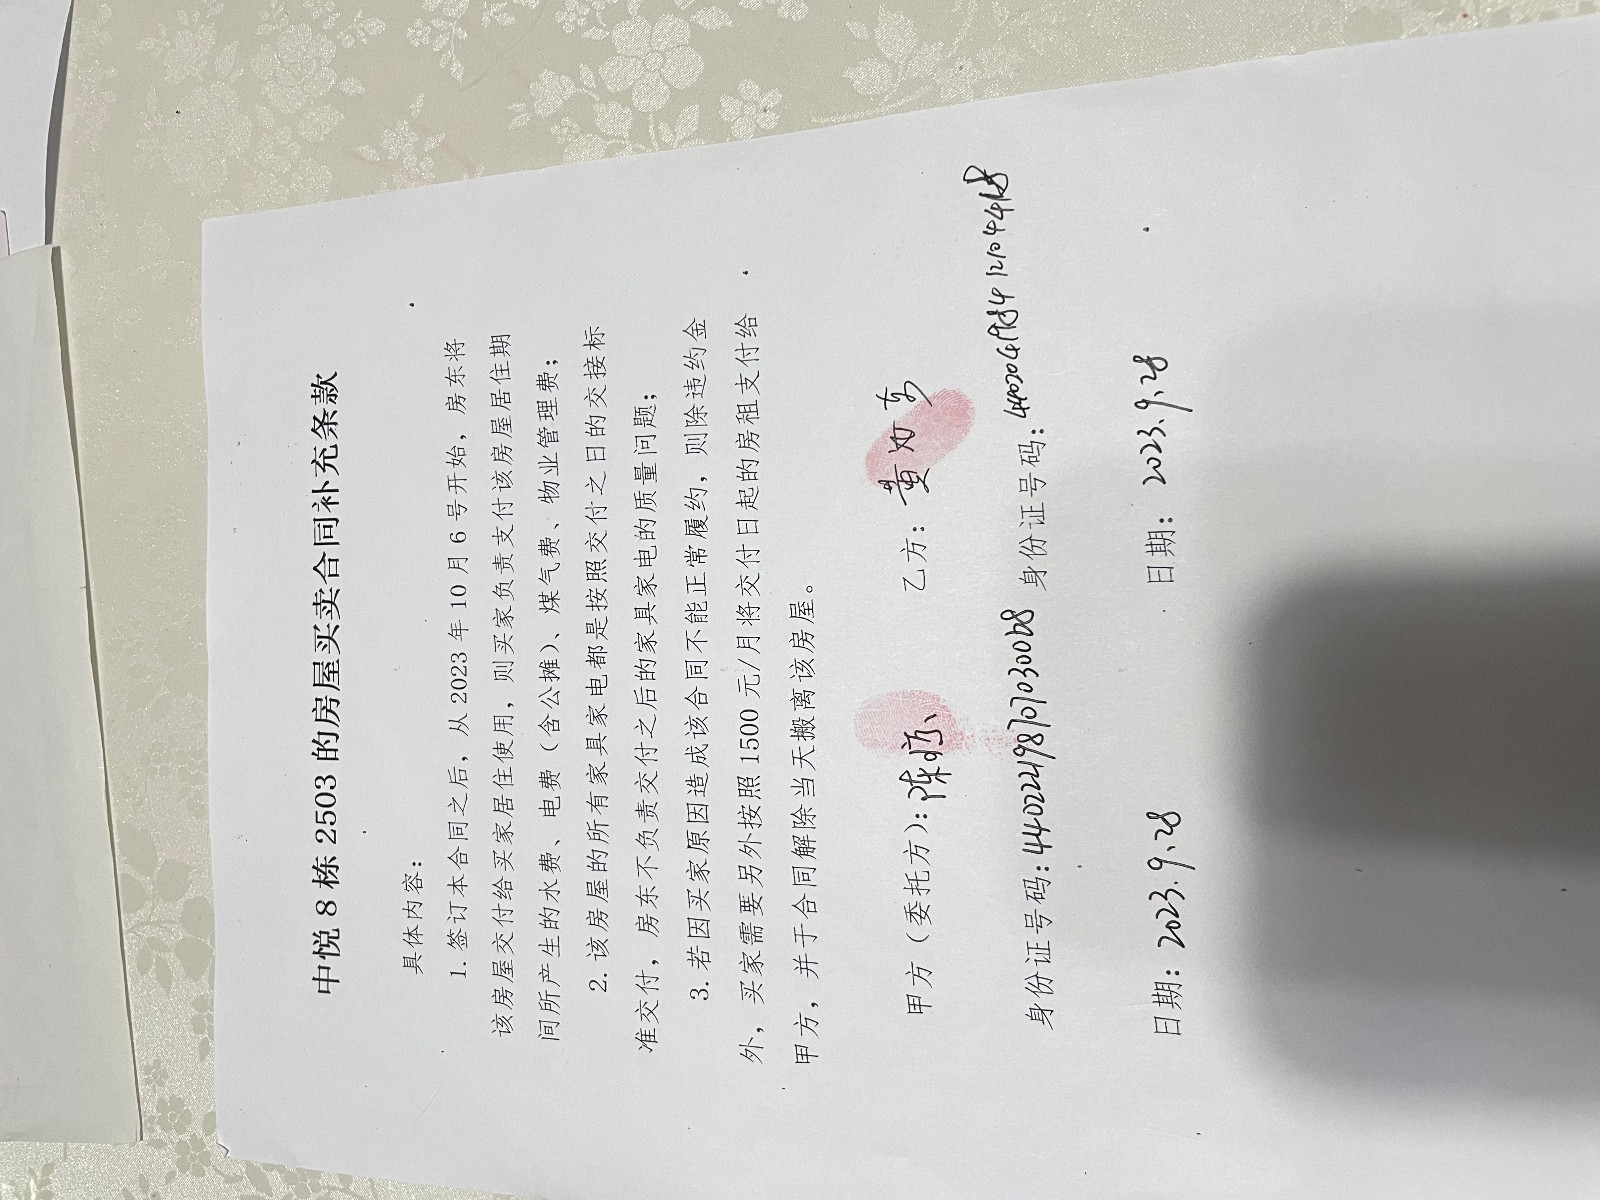 中悦 8 栋 2503 的房屋买卖合同补充条款
具体内容：
1. 签订本合同之后，从 2023 年 10 月 6 号开始，房东将
该房屋交付给买家居住使用，则买家负责支付该房屋居住期
间所产生的水费、电费（含公摊）、煤气费、物业管理费；
2. 该房屋的所有家具家电都是按照交付之日的交接标
准交付，房东不负责交付之后的家具家电的质量问题；
3. 若因买家原因造成该合同不能正常履约，则除违约金
外，买家需要另外按照 1500 元/月将交付日起的房租支付给
甲方，并于合同解除当天搬离该房屋。
甲方（委托方）：陈 乙方：黄
身份证号码： 身份证号码：
日期：2023.9.28 日期：2023.9.28